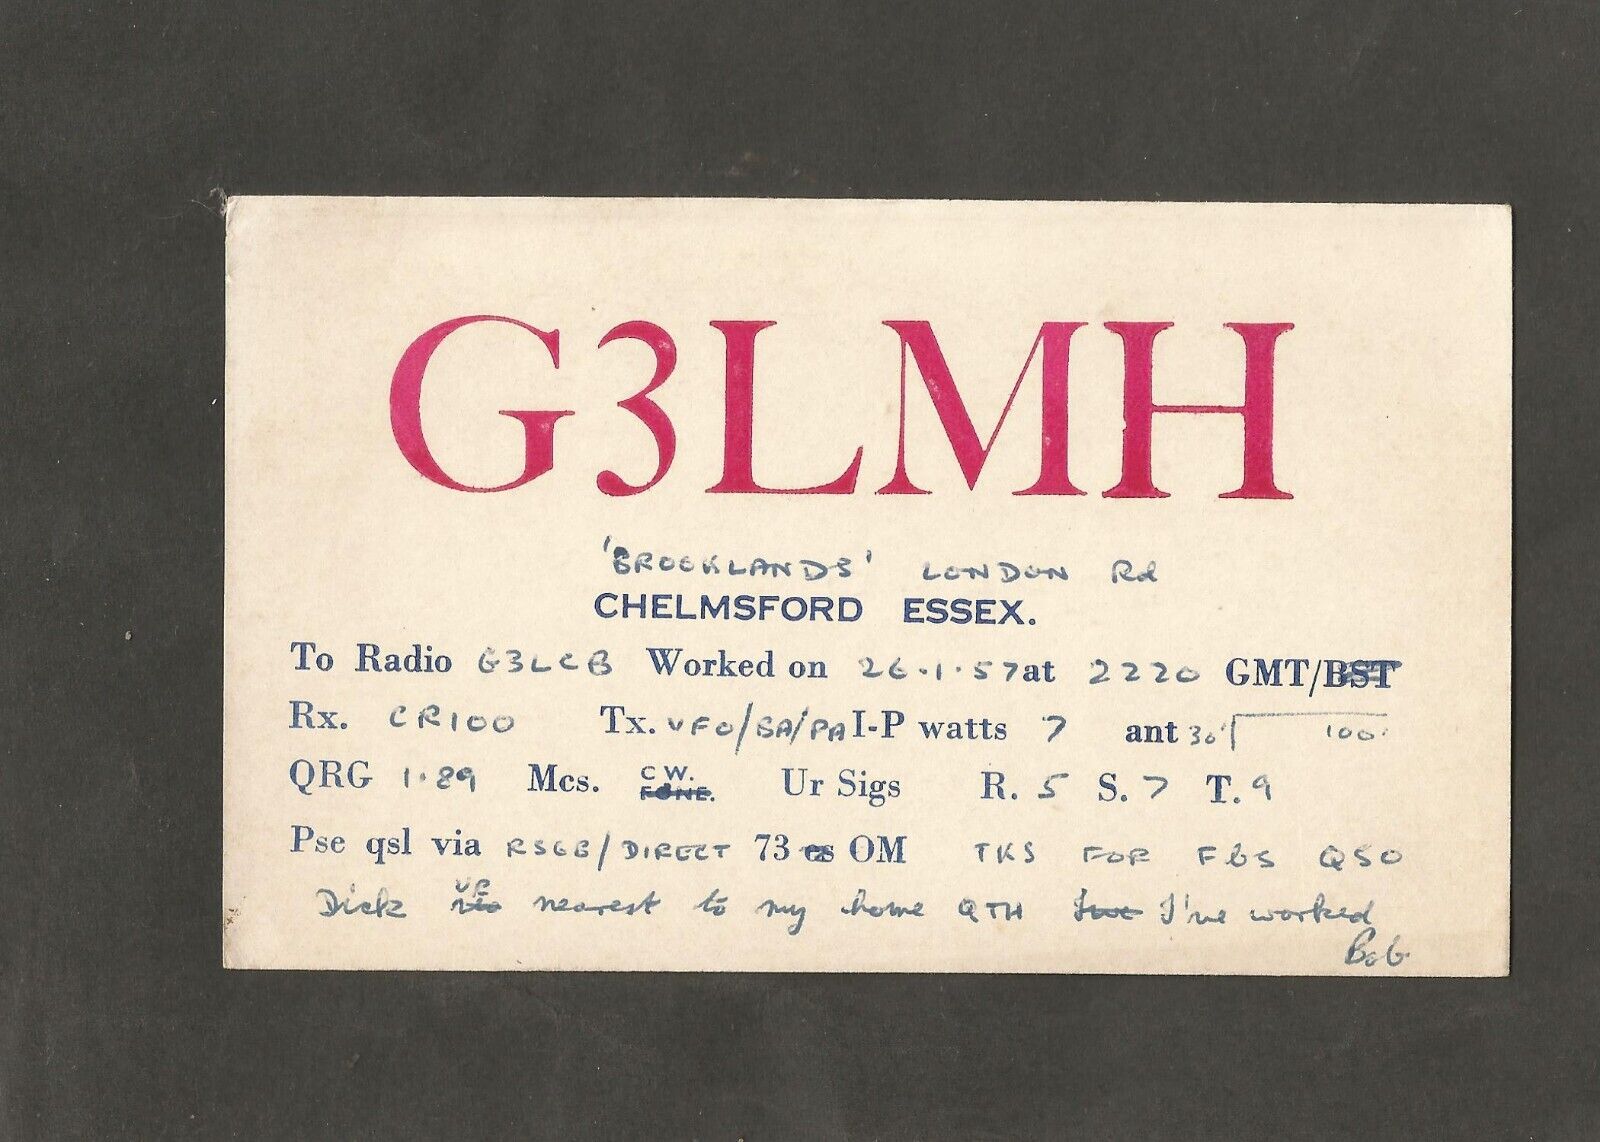 G3LMH
'BROOKLANDS' LONDON Rd
CHELMSFORD ESSEX.
To Radio G3LCB Worked on 26.1.57 at 2220 GMT/BST
Rx. CR100 Tx. VFO/BA/PA I-P watts 7 ant 30' 100'
QRG 1.89 Mcs. C W. FONE. Ur Sigs R. 5 S. 7 T. 9
Pse qsl via RSGB/DIRECT 73 es OM TKS FOR FBS QSO
Dick UR nearest to my home QTH I've worked
Bob